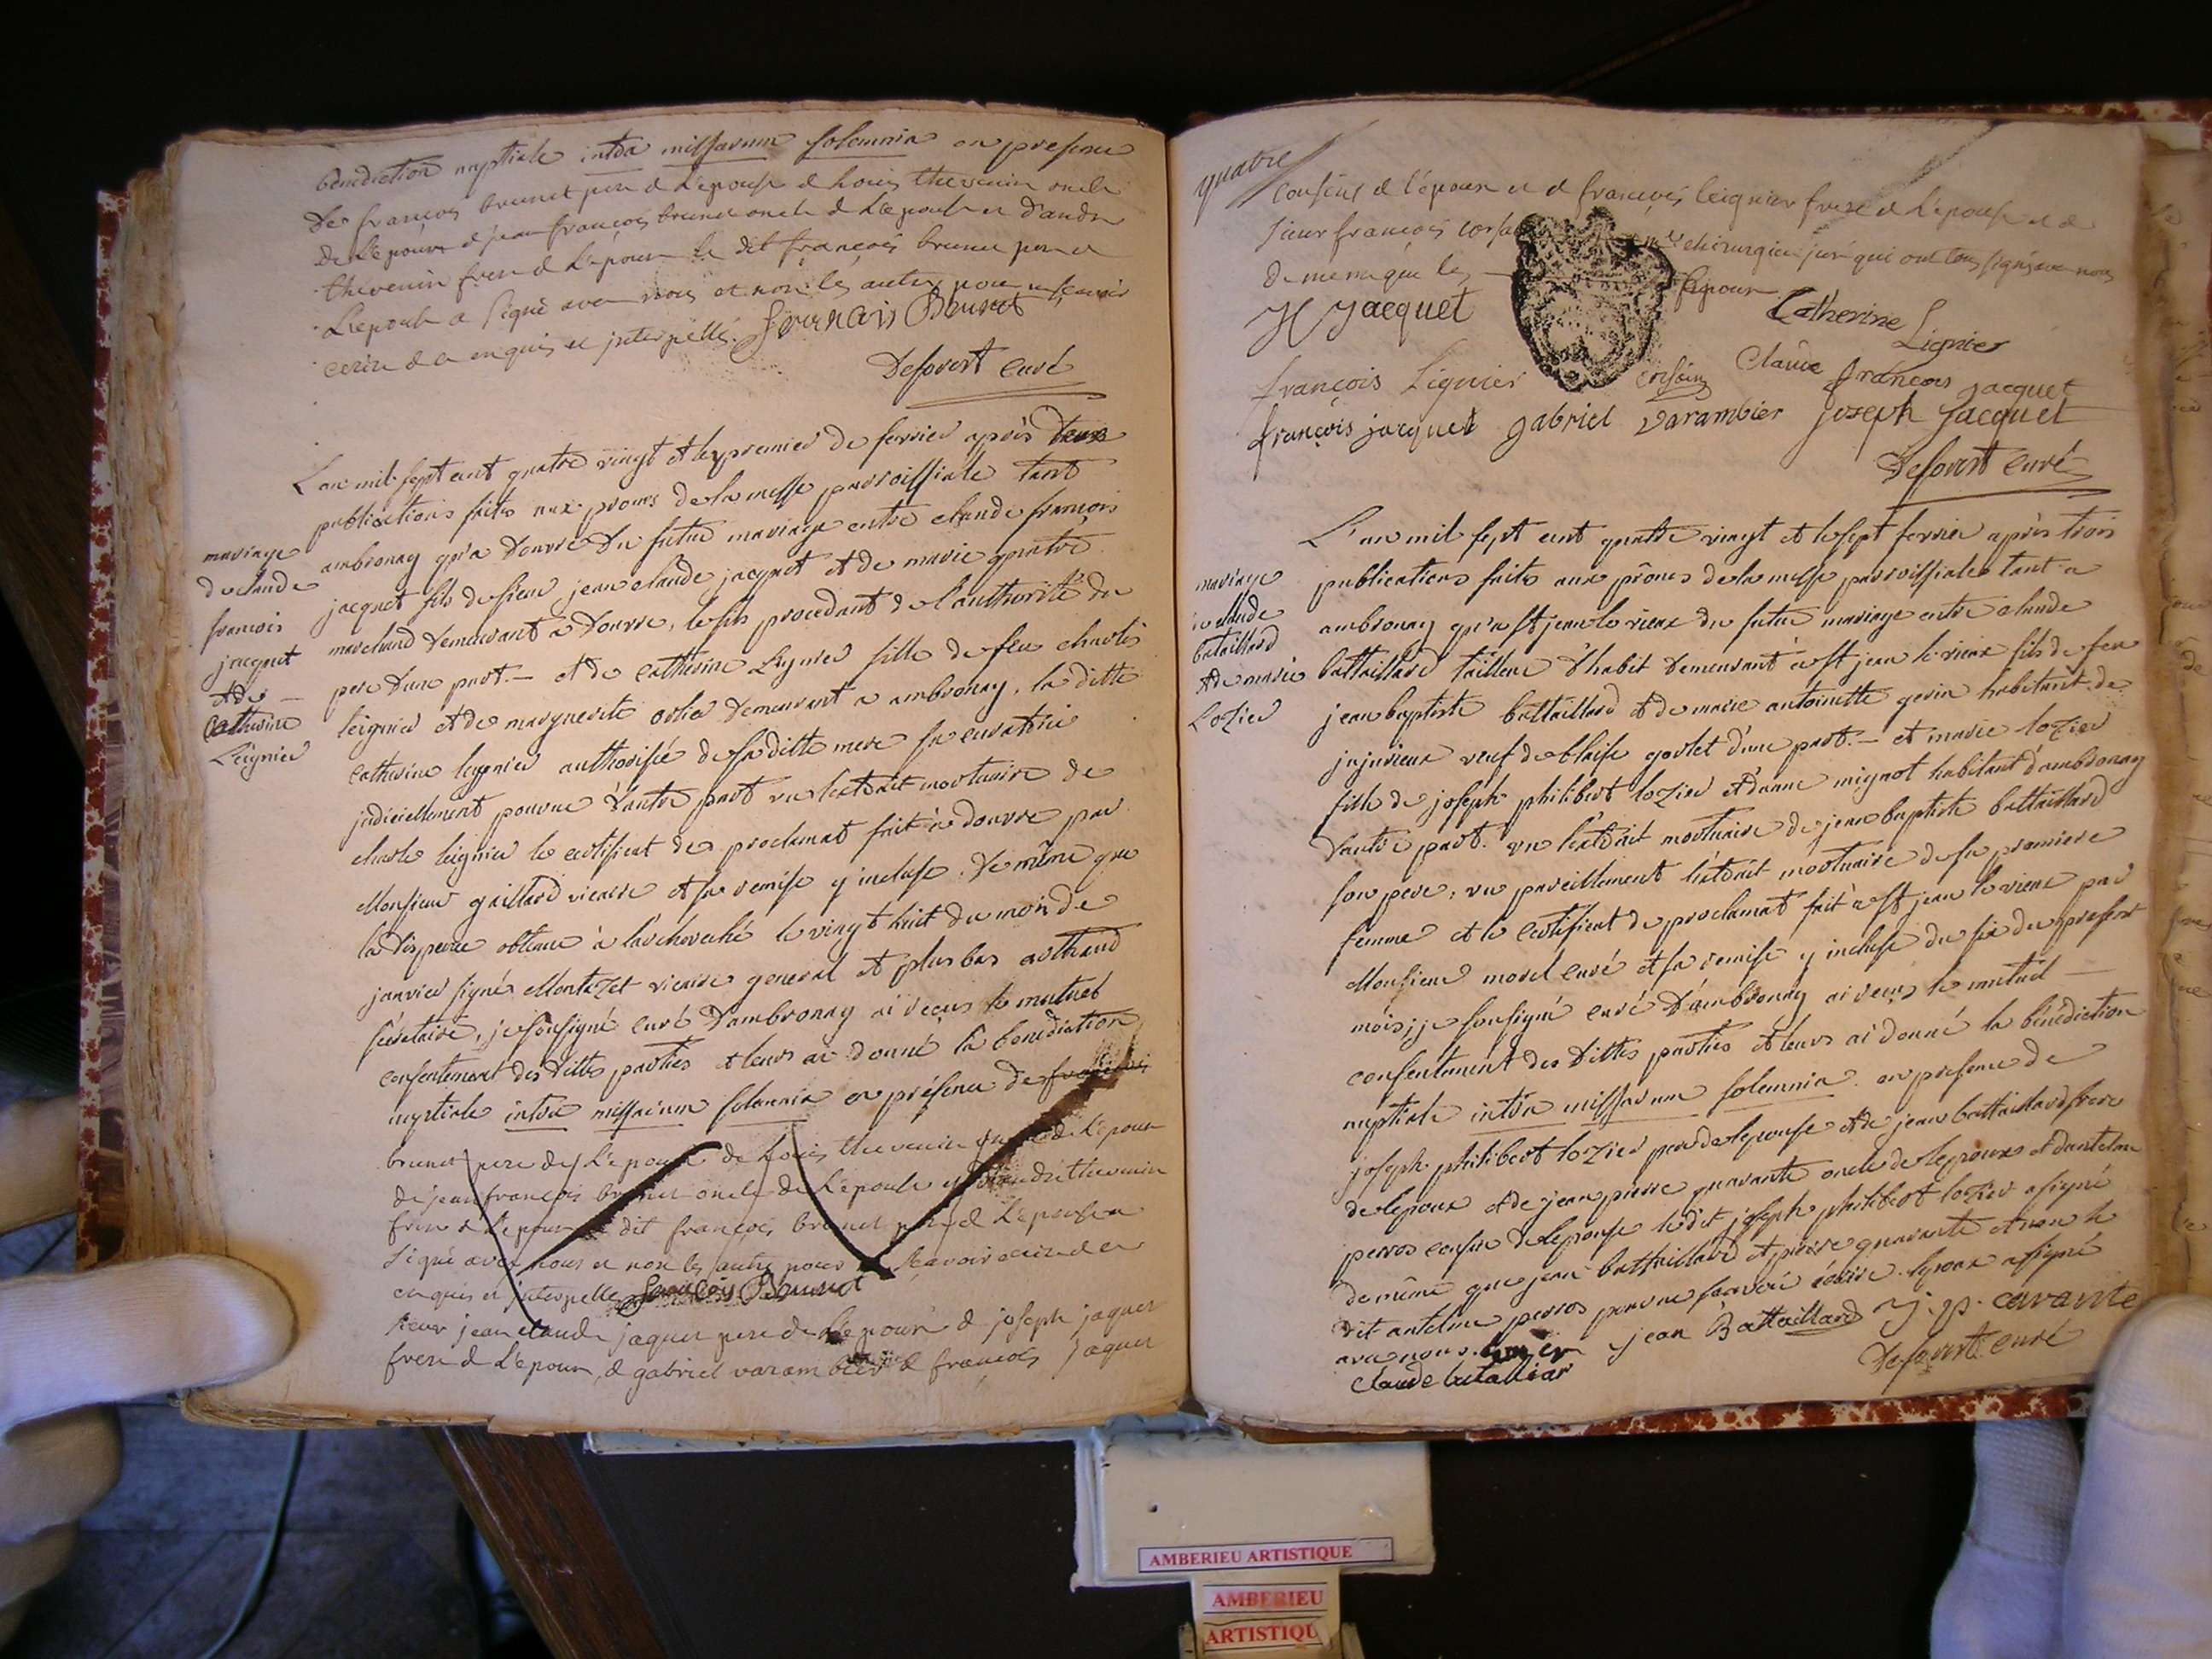 bénédiction nuptiale intra missarum solemnia en presence
de francois brunet pere de L'epouse de Louis thevenin oncle
de L'epoux de jean francois brunet oncle de L'epouse et d'andre
thevenin frere de L'epoux le dit françois brunet pere de
L'epouse a signé avec nous et non les autres pour ne scavoir
ecrire de ce enquis et interpellés. francois Brunet
Desforest curé
L'an mil sept cent quatre vingt et le premier de fevrier après deux
publications faites aux prones de la messe parroissiale tant
ambronay qu'a douvre du futur mariage entre claude françois
jacquet fils de sieur jean claude jacquet et de marie quatre
marchand demeurant a Douvre, le fils procedant de l'authorité du
pere d'une part. — et de catherine Lignier fille de feu charles
leignier et de marguerite orlier demeurant a ambronay, la ditte
catherine leignier authorisée de sa ditte mere sa curatrice
judiciellement pourvue d'autre part vu l'extrait mortuaire de
charle leignier le certificat de proclamat fait a douvre par
Monsieur gaillard vicaire et sa remise y incluse. de même que
la dispense obtenue à l'archeveché le vingt huit du mois de
janvier signé Montazet vicaire general et plus bas
secretaire, je sousigné curé d'ambronay ai reçus le mutuel
consentement des dittes parties et leurs ai donné la benediction
nuptiale intra missarum solemnia en présence de francois
brunet pere de L'epouse de Louis thevenin oncle de L'epoux
de jean francois brunet oncle de L'epouse et d'andre thevenin
frere de L'epoux le dit francois brunet pere de L'epouse a
signé avec nous et non les autres pour ne scavoir ecrire de ce
enquis et interpellés francois Brunet
sieur jean claude jaquet pere de L'epoux de joseph jaquet
frere de L'epoux, de gabriel varambier de francois jaquet
mariage
de claude
francois
jacquet
et de —
Catherine
Leignier
quatre
cousins de l'époux et de francois leignier frere de L'epouse et de
sieur francois me chirurgien juré qui ont tous signé avec nous
de meme que les époux
Jacquet
Catherine
Lignier
françois Lignier
Claude françois jacquet
françois jacquet gabriel varambier joseph jacquet
Desforest curé
L'an mil sept cent quatre vingt et le sept fevrier après trois
publications faites aux prônes de la messe parroissiale tant a
ambronay qu'a st jean le vieux du futur mariage entre claude
battaillard tailleur d'habit demeurant a st jean le vieux fils de feu
jean baptiste battaillard et de marie antoinette gerin habitant de
jujurieux veuf de blaise goblet d'une part. — et marie lozier
fille de joseph philibert lozier et d'anne mignot habitant d'ambronay
d'autre part. vu l'extrait mortuaire de jean baptiste battaillard
son pere, vu pareillement l'extrait mortuaire de sa premiere
femme et le certificat de proclamat fait a st jean le vieux par
Monsieur morel curé et sa remise y incluse du six du present
mois, je sousigné curé d'ambronay ai reçus le mutuel —
consentement des dittes parties et leurs ai donné la bénédiction
nuptiale intra missarum solemnia. en presence de
joseph philibert lozier pere de lepouse et de jean battaillard frere
de lepoux et de jean pierre quarante oncle de lepoux et d'antelme
perros cousin de lepouse le dit joseph philibert lozier a signé
de même que jean battaillard et pierre quarante et non le
dit antelme perros pour ne scavoir écrire. lepoux a signé
avec nous. jean Battaillard j. p. carante
claude batalliar
Desforest curé
mariage
de claude
bataillard
et de marie
Lozier
AMBERIEU ARTISTIQUE
AMBERIEU
ARTISTIQU